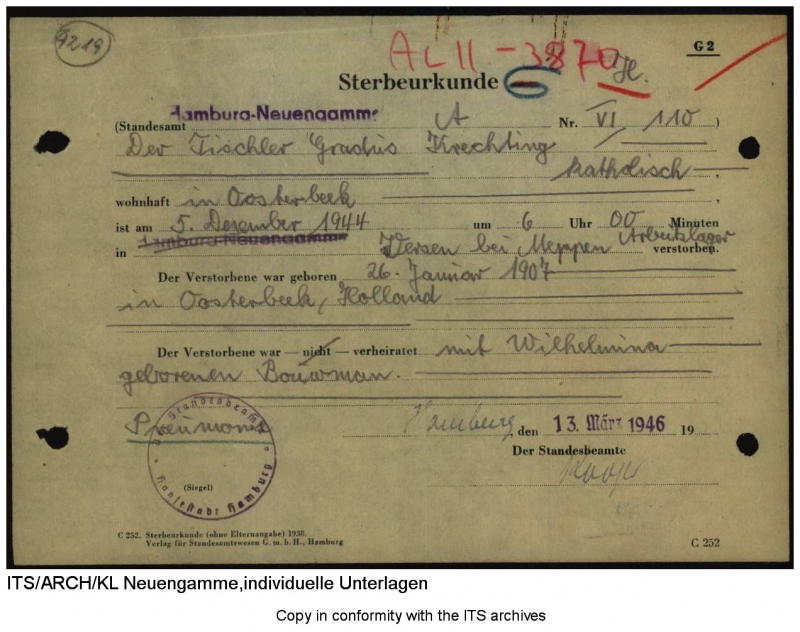 4219
AL 11 - 3870
G 2
Sterbeurkunde
(Standesamt Hamburg-Neuengamme A Nr. VI / 110 )
Der Tischler Gradus Krechting
katholisch ,
wohnhaft in Oosterbeek ,
ist am 5. Dezember 1944 um 6 Uhr 00 Minuten
in Hamburg-Neuengamme Versen bei Meppen Arbeitslager verstorben.
Der Verstorbene war geboren 26. Januar 1907
in Oosterbeek, Holland
Der Verstorbene war — nicht — verheiratet mit Wilhelmina
geborenen Bouwman.
Pneumonie
Hamburg, den 13. März 1946 19
Der Standesbeamte
Der Standesbeamte
Hansestadt Hamburg
(Siegel)
C 252. Sterbeurkunde (ohne Elternangabe) 1938.
Verlag für Standesamtswesen G. m. b. H., Hamburg
C 252
ITS/ARCH/KL Neuengamme,individuelle Unterlagen
Copy in conformity with the ITS archives